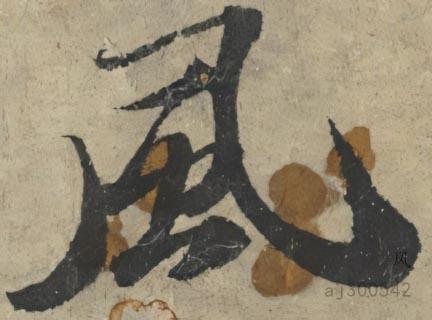 風
风
aj300342